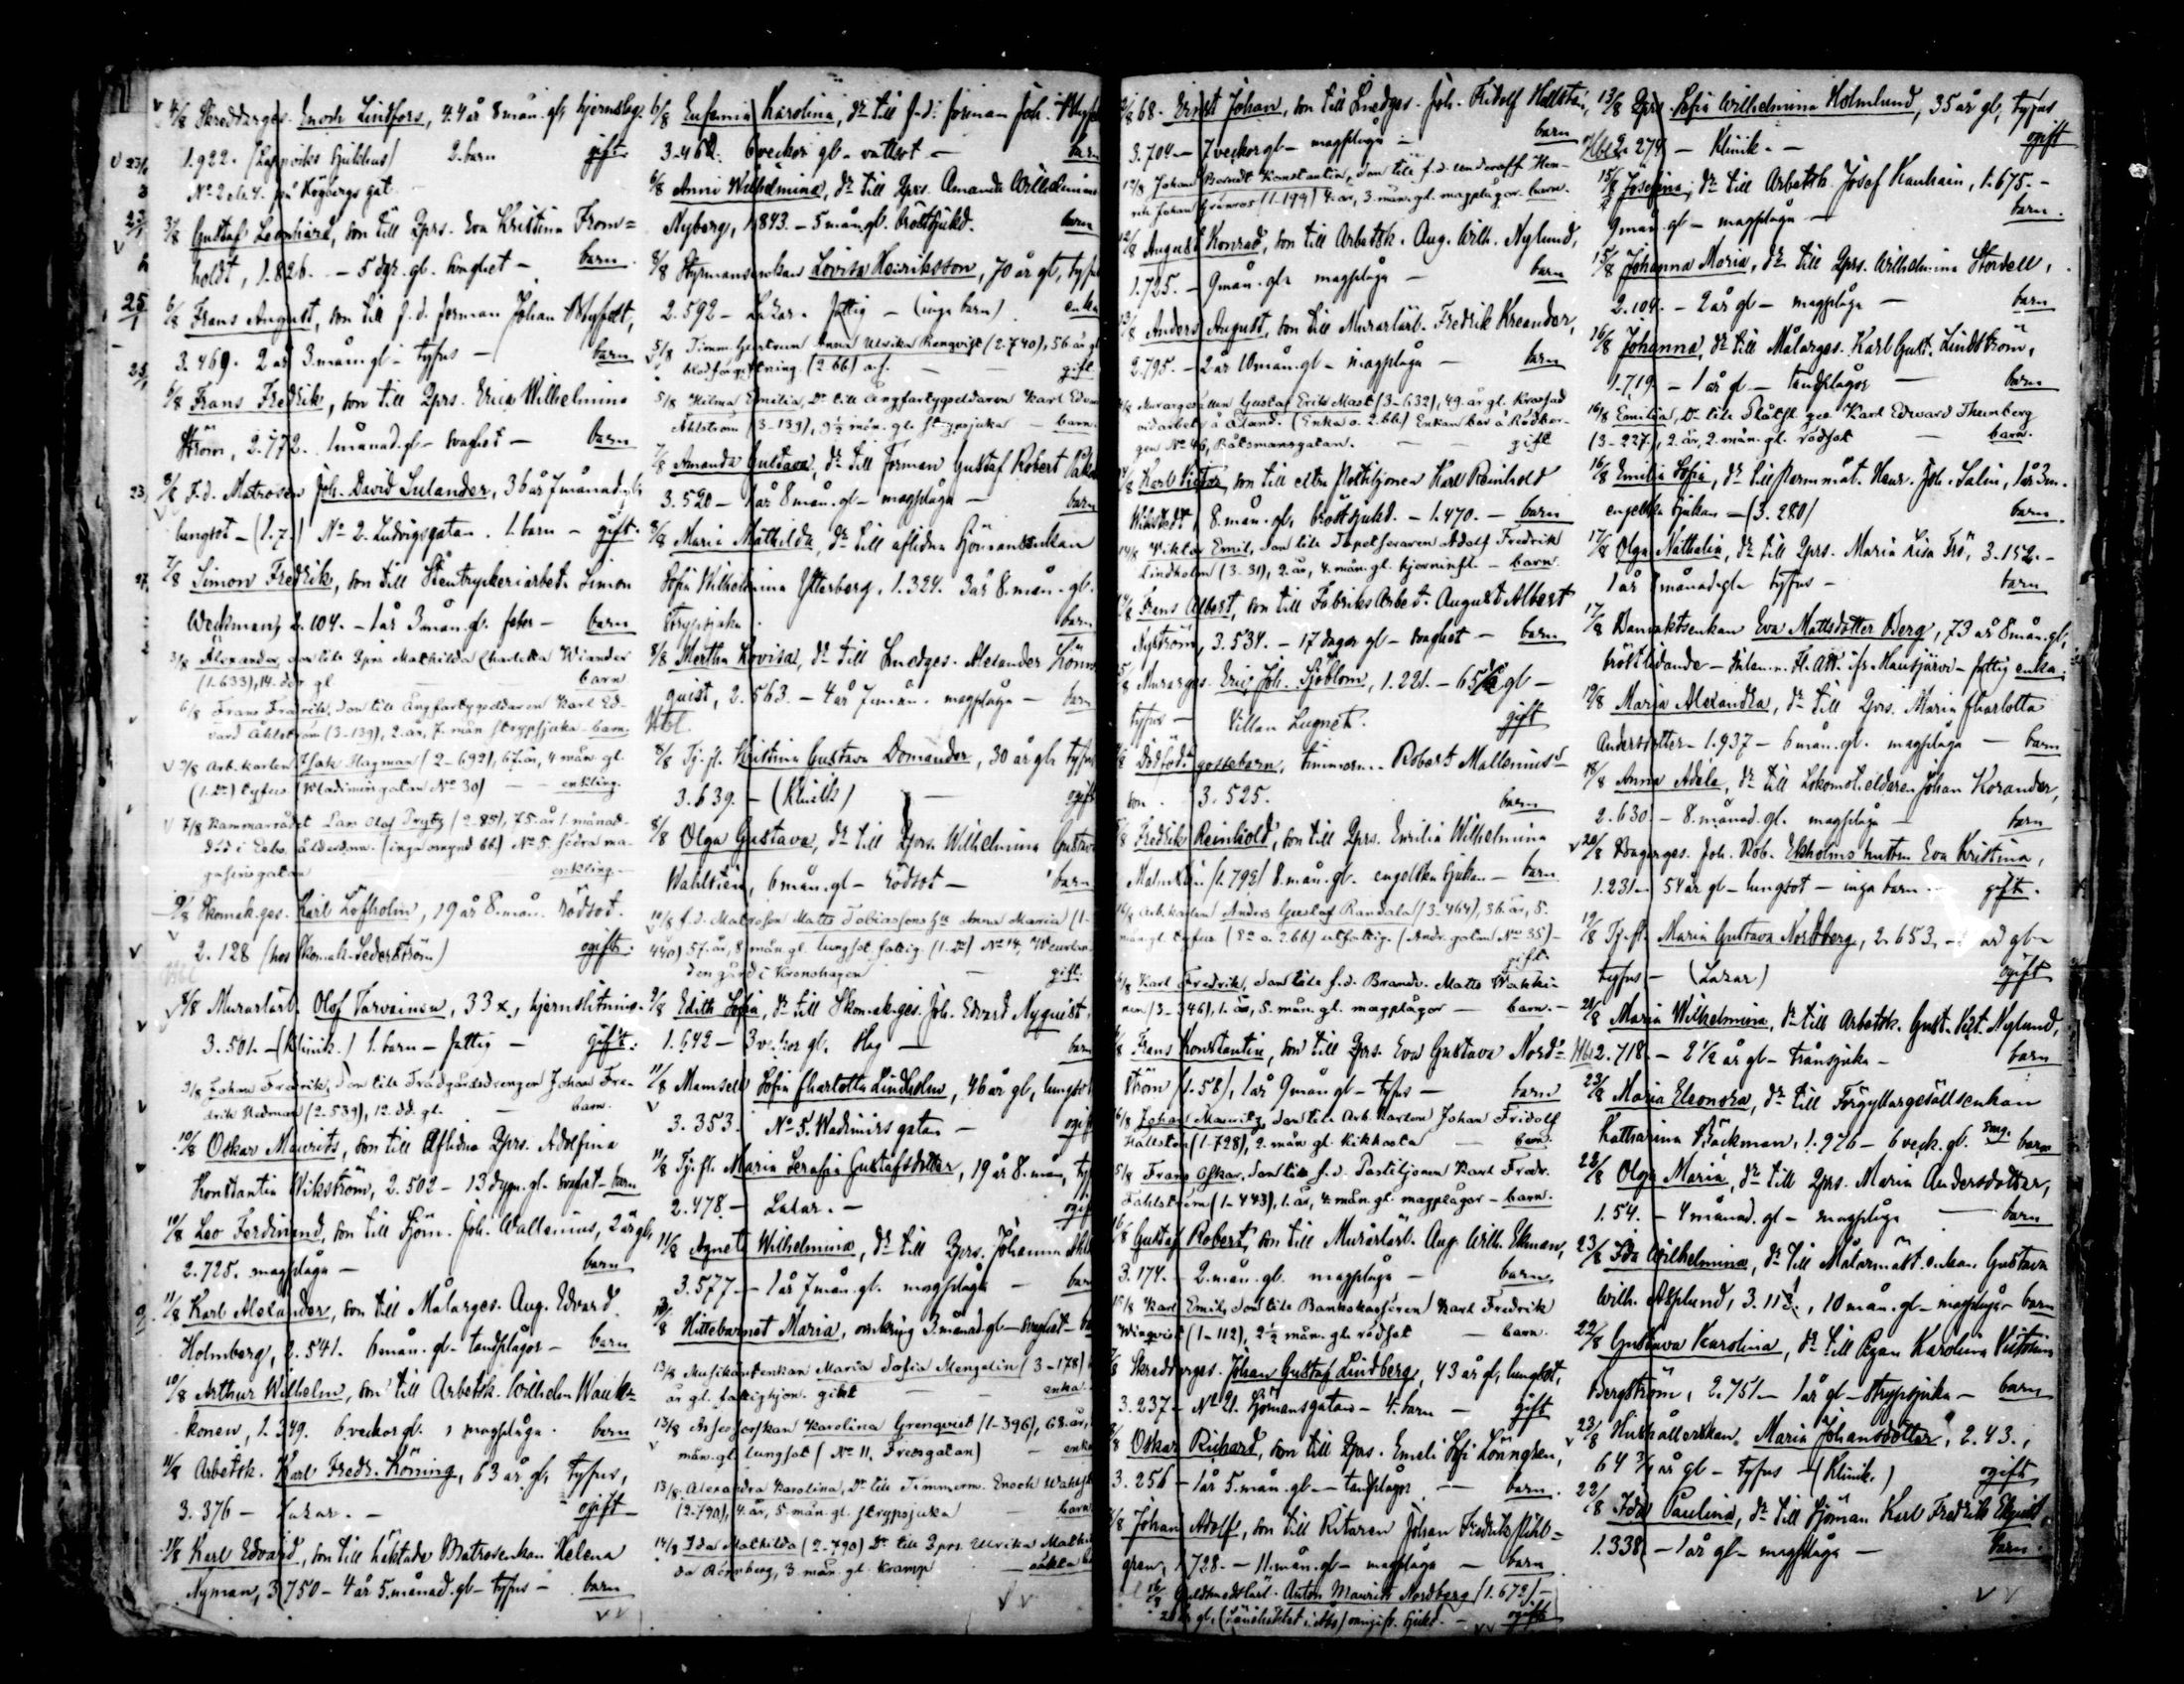 4/8 Skreddarges. Enoch Lindfors, 44 år 8 mån. gl, hjernslag.
1.922. (Lappviks Sjukhus) 2. barn gift
No 2 eller 4. på Högbergs gat.
3/8 Gustaf Leonhard, son till Qprs. Eva Kristina From=
holdt, 1.826. - 5 dgr. gl. svaghet - barn
6/8 Frans August, son till f.d. forman Johan
3.469. 2 år 3 mån gl - tyfus - barn
6/8 Frans Fredrik, son till Qprs. Erica Wilhelmina
Ström, 2.772. 1 månad. gl - svaghet - barn
8/8 F.d. Matrosen Joh. David Sulander, 36 år 7 månad. gl,
lungsot - (1.7.) No 2. Ludvigsgatan. 1. barn - gift.
7/8 Simon Fredrik, son till Stentryckeriarbet. Simon
Weckman, 2.104. - 1 år 3 mån. gl. feber - barn
3/8 Alexander, son till Qprs Mathilda Charlotta Wiander
(1-633), 14. dar gl barn
6/8 Frans Fredrik, son till Ångfartygseldaren Karl Ed-
vard Åhlström (3-139), 2. år, 7. mån strypsjuka - barn
9/8 Arb. karlen Isak Hagman (2-692), 67. år, 4 mån gl.
tyfus (Wladimirsgatan No 30) - enkling.
7/8 Kammarrådet Lars Olof Prytz (2-85), 75. år 1. månad.
död i Esbo. ålderdom. (inga omynd bb) No 5. Södra ma-
gasinsgatan enkling.
9/8 Skomak. ges. Karl Löfholm, 19 år 8. mån. rödsot.
2.128 (hos Skomak. Sederström) ogift.
8/8 Murarlärl. Olof Tarvainen, 33 x, hjernslitning.
3.501. - (Klinik.) 1. barn - fattig - gift.
9/8 Johan Fredrik, son till Trädgårdsdrengen Johan Fre-
drik Hedman (2-539), 12. dd. gl. - barn.
10/8 Oskar Maurits, son till Aflidna Qprs. Adolfina
Konstantia Wikström, 2.502 - 13 dygn. gl. svaghet - barn
10/8 Leo Ferdinand, son till Sjöm. Joh. Wallenius, 2 år gl,
2.725. magplåga - barn
11/8 Karl Alexander, son till Målarges. Aug. Edvard
Holmberg, 2.541. 6 mån. gl - tandplågor - barn
10/8 Arthur Wilhelm, son till Arbetsk. Wilhelm Wauh=
konen, 1.349. 6. veckor gl. magplåga. barn
11/8 Arbetsk. Karl Fredr. Köning, 63 år gl, tyfus,
3.376 - Lazar. - ogift
11/8 Karl Edvard, son till häktade Matrosenkan Helena
Nyman, 3.750 - 4 år 5. månad. gl - tyfus - barn
6/8 Eufemia Karolina, dr till f.d. forman Joh.
3.462. 6 veckor gl - vattsot -
6/8 Anni Wilhelmina, dr till Qprs. Amanda Wilhelmina
Nyberg, 1.843. - 5 mån. gl. bröstsjukd. barn
8/8 Styrmansenkan Lovisa Henriksson, 70 år gl,
2.592 - Lazar. fattig - (inga barn). enka
5/8 Timm. hustrun Anna Ulrika Renqvist (2.740), 56 år gl
blodförgiftning. (2 bb) gift
5/8 Hilma Emilia, Dr till Ångfartygseldaren Karl Edvard
Åhlström (3-139), 9½ mån. gl. strypsjuka - barn.
7/8 Amanda Gustava, dr till Forman Gustaf Robert
3.520 - 1 år 8 mån. gl - magplåga - barn
8/8 Maria Mathilda, dr till aflidna Sjömansenkan
Sofia Wilhelmina Ytterberg, 1.324. 3 år 8. mån. gl.
strypsjuka barn
8/8 Martha Lovisa, dr till Smedges. Alexander Lönn-
quist, 2.563. - 4 år 7 mån. magplåga - barn
Hbl
8/8 Tj. fl. Kristina Gustava Domander, 30 år gl,
3.639. - (Klinik) - ogift
8/8 Olga Gustava, dr till Qprs. Wilhelmina Gustava
Wahlstén, 6 mån. gl - rödsot - barn
10/8 f.d. Matrosen Matts Tobiassons hu Anna Maria (1-
440) 57. år, 8. mån. gl. lungsot. fattig. No 14,
den gård i Kronohagen - gift.
9/8 Edith Sofia, dr till Skomak. ges. Joh. Edvard Nyquist,
1.642 - 3 veckor gl. slag - barn
11/8 Mamsell Sofia Charlotta Lindholm, 46 år gl, lungsot
3.353. No 5. Wadimirs gatan - ogift
11/8 Tj. fl. Maria Serafia Gustafsdotter, 19 år 8. mån,
2.478. - Lazar. - ogift
11/8 Agneta Wilhelmina, dr till Qprs. Johanna
3.577 - 1 år 7 mån. gl. magplåga - barn
10/8 Hittebarnet Maria, omkring 3. månad. gl - svaghet -
13/8 Musikantenkan Maria Sofia Menzelin (3-178)
år gl. fattighjon. gikt - enka
13/8 Assessorskan Karolina Grenqvist (1-396), 68. år,
mån. gl. lungsot (No 11, Fredsgatan) - enka
13/8 Alexandra Karolina, Dr till Timmerm. Enoch
(2-790), 4. år, 5. mån. gl. strypsjuka - barn
14/8 Ida Mathilda (2-790) Dr till Qprs. Ulrika
da Rönnberg, 3. mån. gl. kramp -
9/8 68. Ernst Johan, son till Smedges. Joh. Fridolf Hällsten,
3.704. - 7 veckor gl - magplåga - barn
12/8 Johan Berndt Konstantin, son till f.d. underoff. Hen-
rik Johan Grönroos (1-199) 4. år, 3. mån. gl. magplågor. barn.
12/8 August Konrad, son till Arbetsk. Aug. Wilh. Nylund,
1.725. - 9 mån. gl. magplåga - barn
13/8 Anders August, son till Murarlärl. Fredrik Kreander,
2.795. - 2 år 10 mån. gl - magplåga - barn
Murargesällen Gustaf Erik Mast (3-632), 49. år gl. krossad
vid arbete å Åland. (Enka o. 2. bb) Enkan bor å Rödber-
gen No 46, Båtsmansgatan. - gift
14/8 Karl Victor, son till extra Postiljonen Karl Reinhold
Wikstedt, 8. mån. gl, bröstsjukd. - 1.470. - barn
14/8 Viktor Emil, son till Tapetseraren Adolf Fredrik
Lindholm (3-31), 2. år, 4. mån. gl. hjerninfl. - barn
14/8 Frans Albert, son till Fabriks Arbet. August Albert
Nyström, 3.534. - 17 dagar gl - svaghet - barn
15/8 Murarges. Eric Joh. Sjöblom, 1.221. - 65 gl -
tyfus - Villan Lugnet. gift
Dödfödt gossebarn, timmerm. Robert Mallenius
son. 3.525. barn
Fredrik Reinhold, son till Qprs. Emilia Wilhelmina
Malmstén (1.792) 8. mån. gl. engelska sjukan - barn
16/8 Arb. karlen Anders Gustaf Randala (3-464), 36. år, 5.
mån. gl. tyfus utfattig. (Andr. gatan No 35) -
gift
6/8 Karl Fredrik, son till f.d. Brandv. Matts Wakki-
nen (3-346), 1. år, 5. mån. gl. magplågor - barn. -
Frans Konstantin, son till Qprs. Eva Gustava Nord=
ström (1.58), 1 år 9 mån. gl - tyfus - barn
6/8 Johan Mauritz, son till Arb. karlen Johan Fridolf
Hällsten (1-728), 2. mån gl. kikhosta - barn.
15/8 Frans Oskar, son till f.d. Postiljonen Karl Fredr.
Fahlström (1-443), 1. år, 4. mån. gl. magplågor - barn.
16/8 Gustaf Robert, son till Murarlärl. Aug. Wilh. Ekman,
3.174. - 2. mån. gl. magplåga - barn
15/8 Karl Emil, son till Bankokassören Karl Fredrik
Winqvist (1-112), 2½ mån. gl. rödsot - barn.
Skreddarges. Johan Gustaf Lindberg, 43 år gl, lungsot,
3.237 - No 21. Sjömansgatan - 4. barn - gift
Oskar Richard, son till Qprs. Emeli Sofi Lönngren,
3.256 - 1 år 5. mån. gl - tandplågor - barn.
Johan Adolf, son till Ritaren Johan Fredrik Mühl=
gren, 1.728. - 11. mån. gl - magplåga - barn
16/8 Guldsmedslärl. Anton Maurits Nordberg (1.672) -
år gl. (Länehäktet i Åbo) - ogift
13/8 Qprs. Sofia Wilhelmina Holmlund, 35 år gl, tyfus
Hbl 2.274 - Klinik. - ogift
15/8 Josefina, dr till Arbetsk. Josef Kauhain, 1.675. -
9 mån. gl - magplåga - barn.
15/8 Johanna Maria, dr till Qprs. Wilhelmina Stordell,
2.104. - 2 år gl - magplåga - barn
16/8 Johanna, dr till Målarges. Karl Gust. Lindström,
1.719. - 1 år gl - tandplågor - barn
16/8 Emilia, Dr till Plåtsl. ges. Karl Edward Thunberg
(3-227), 2. år, 2. mån. gl. rödsot - barn.
16/8 Emilia Sofia, dr till Henr. Joh. Salin, 1 år 3 m.
engelska sjukan - (3.280) barn.
17/8 Olga Nathalia, dr till Qprs. Maria Lisa Frö, 3.152. -
1 år månad. gl. tyfus - barn
17/8 Eva Mattsdotter Berg, 73 år 8 mån. gl,
bröstlidande - fr. Hausjärvi - fattig enka.
19/8 Maria Alexandra, dr till Qprs. Maria Charlotta
Andersdotter - 1.937 - 6 mån. gl. magplåga - barn
18/8 Anna Adele, dr till Lokomot. eldaren Johan Korander,
2.630 - 8. månad. gl. magplåga - barn
20/8 Joh. Rob. Ekholms hustru Eva Kristina,
1.231 - 54 år gl - lungsot - inga barn - gift.
19/8 Tj. fl. Maria Gustava Nordberg, 2.653. - år gl -
tyfus - (Lazar) ogift
21/8 Maria Wilhelmina, dr till Arbetsk. Gust. Vict. Nylund,
Hbl 2.718. - 2½ år gl - trånsjuka - barn
23/8 Maria Eleonora, dr till Förgyllargesällsenkan
Katharina Bäckman, 1.926 - 6 veck. gl. barn
23/8 Olga Maria, dr till Qprs. Maria Andersdotter,
1.54. - 4 månad. gl - magplåga - barn
23/8 Ida Wilhelmina, dr till Målarmäst. enkan Gustava
Wilh. Asplund, 3.11, 10 mån. gl - magplåga - barn
22/8 Gustava Karolina, dr till Pigan Karolina
Bergström, 2.751 - 1 år gl - strypsjuka - barn
23/8 Hushållerskan Maria Johansdotter, 2.43.,
64 ¾ år gl - tyfus - (Klinik.) ogift
22/8 Ida Paulina, dr till Sjöman Karl Fredrik Ekqvist,
1.338. - 1 år gl - magplåga - barn.